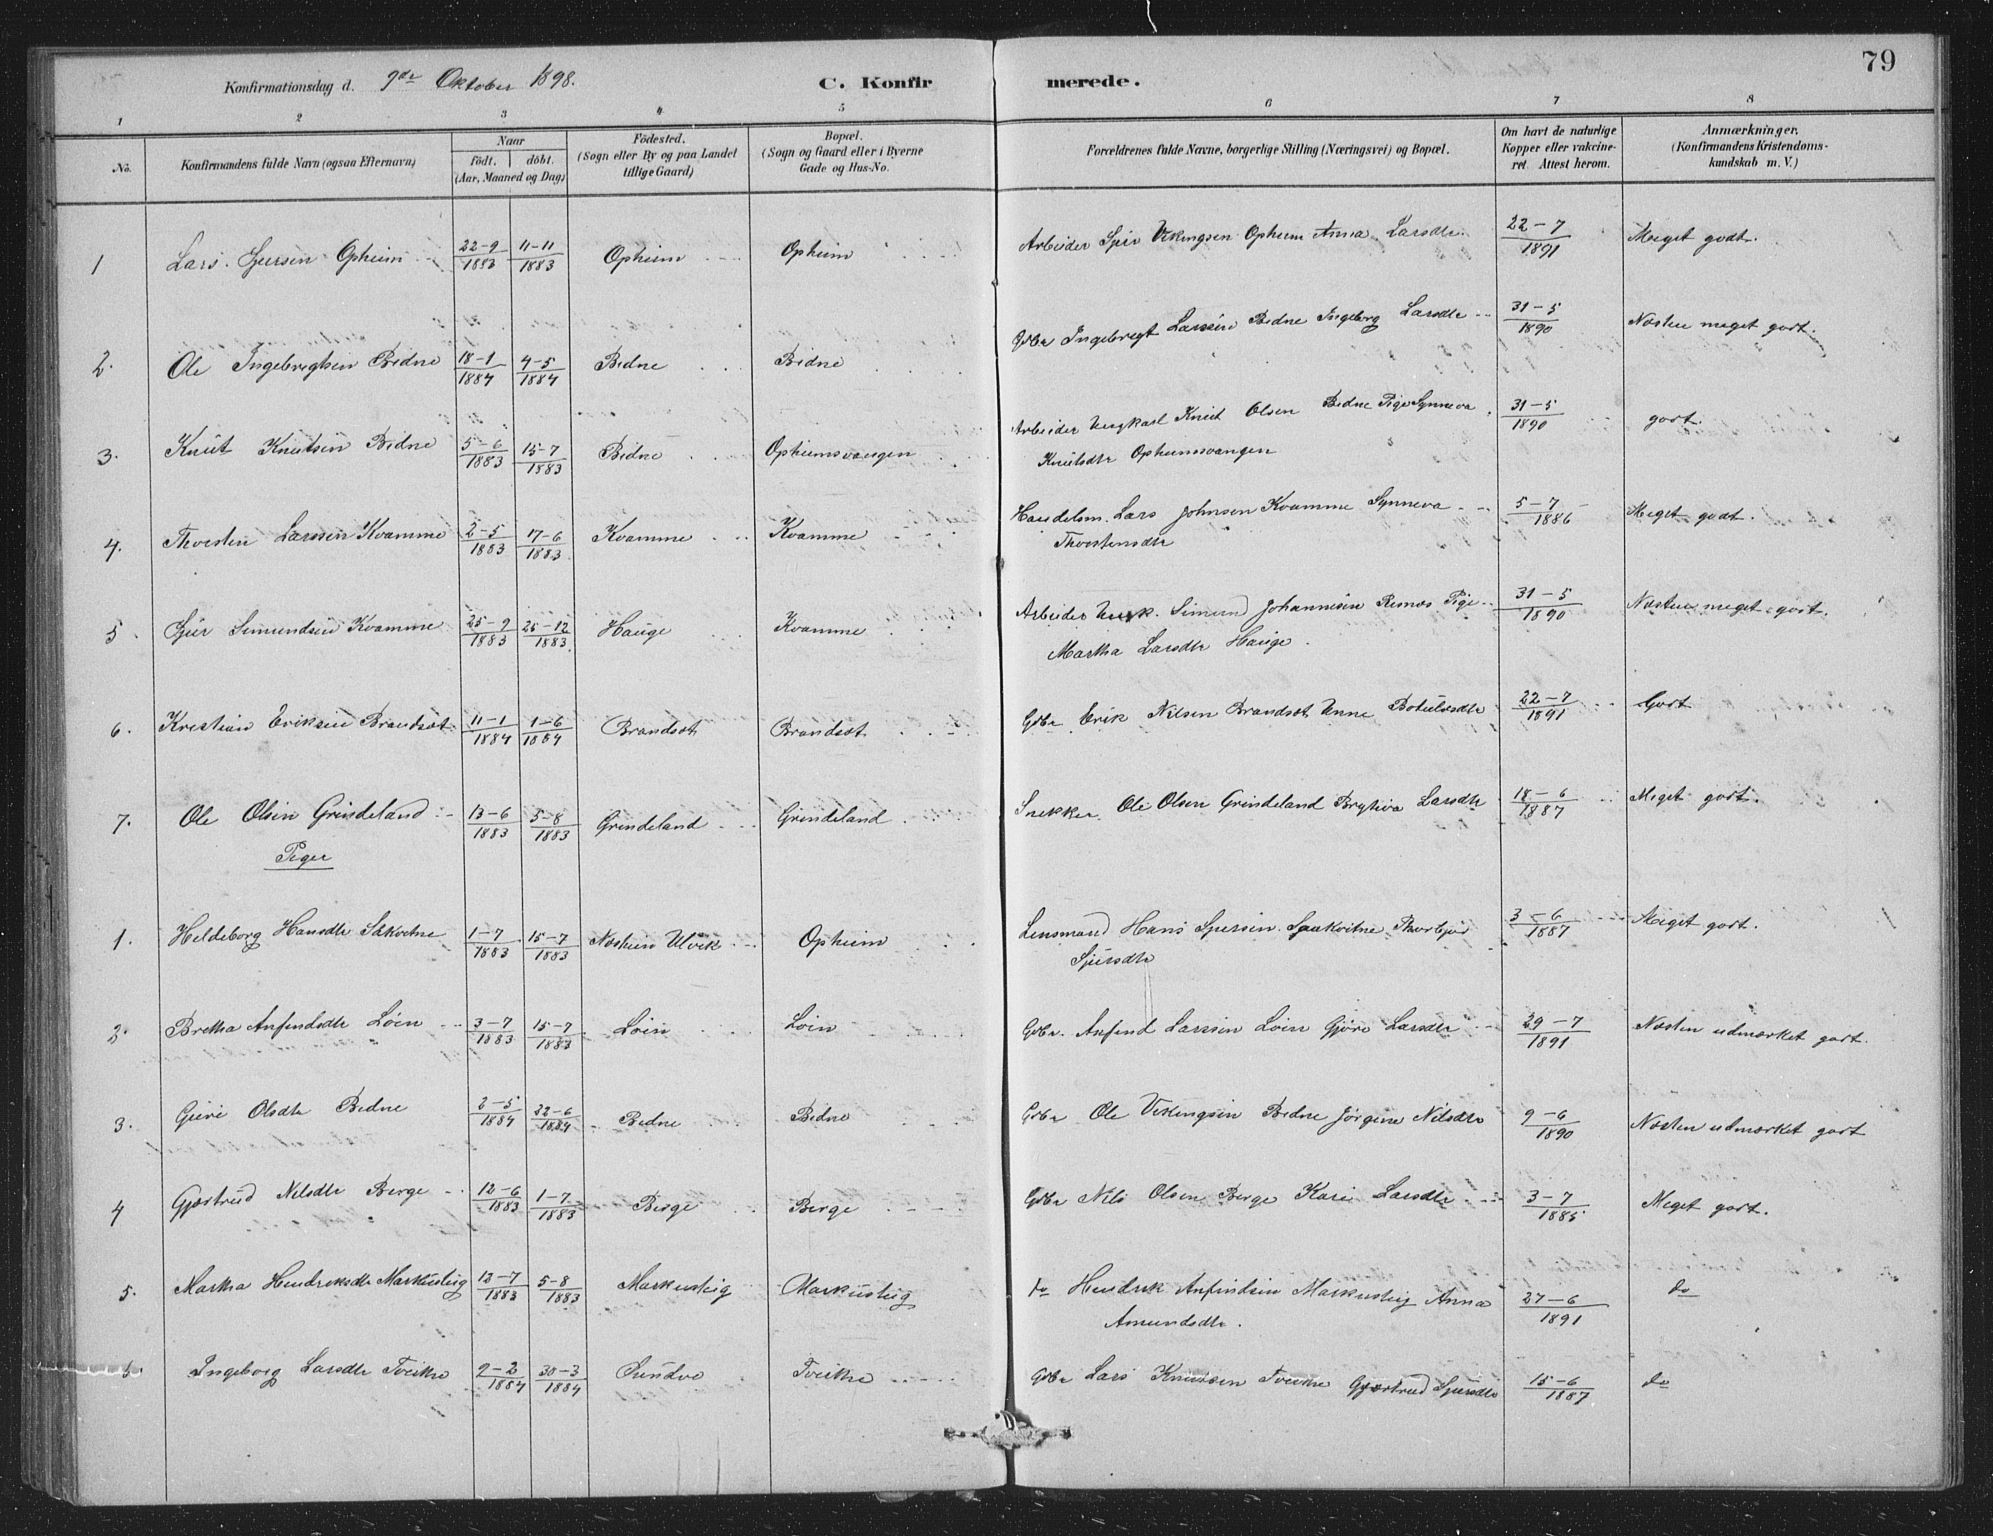 79
Konfirmationsdag d. 9de Oktober 1898.
C. Konfirmerede.
1 2 3 4 5 6 7 8
No. Konfirmandens fulde Navn (ogsaa Efternavn) Naar født. døbt. (Aar, Maaned og Dag) Fødested. (Sogn eller By og paa Landet tillige Gaard) Bopæl. (Sogn og Gaard eller i Byerne Gade og Hus-No. Forældrenes fulde Navne, borgerlige Stilling (Næringsvei) og Bopæl. Om havt de naturlige Kopper eller vakcineret. Attest herom. Anmærkninger, (Konfirmandens Kristendomskundskab m. V.)
1 Lars Sjursen Opheim 22-9 1883 11-11 1883 Opheim Opheim Arbeider Sjur Vikingsen Opheim Anna Larsdtr 22-7 1891 Meget godt.
2. Ole Ingebrigtsen Bidne 18-1 1884 4-5 1884 Bidne Bidne Gdbr Ingebregt Larsen Bidne Ingeborg Larsdtr 31-5 1890 Næsten meget godt.
3. Knut Knutsen Bidne 5-6 1883 15-7 1883 Bidne Opheimsvangen Arbeider Ungkarl Knut Olsen Bidne Pige Synneva 31-5 1890 godt.
Knutsdtr Opheimsvangen
4. Thorsten Larssen Kvamme 2-5 1883 17-6 1883 Kvamme Kvamme Handelsm. Lars Johnsen Kvamme Synneva 5-7 1886 Meget godt.
Thorstensdtr
5. Sjur Simundsen Kvamme 25-9 1883 26-12 1883 Hauge Kvamme Arbeider Ungk. Simund Johannesen Resnæs Pige 31-5 1890 Næsten meget godt.
Martha Larsdtr Hauge.
6. Kristian Eriksen Brandsæt 11-1 1884 1-6 1884 Brandsæt Brandsæt Gdbr Erik Nilsen Brandsæt Anne Botulvsdtr 22-7 1891 Godt
7. Ole Olsen Grindeland 13-6 1883 5-8 1883 Grindeland Grindeland Snekker Ole Olsen Grindeland Brythva Larsdtr 18-6 1887 Meget godt.
Piger
1. Heldeborg Hansdtr Sækvitne 1-7 1883 15-7 1883 Næsheim Ulvik Opheim Lensmand Hans Sjursen Saakvitne Thorbjør 3-6 1887 Meget godt.
Sjursdtr
2. Bretha Anfindsdtr Løin 3-7 1883 15-7 1883 Løin Løin Gdbr. Anfind Larssen Løin Gjøre Larsdtr 29-7 1891 Næsten udmærket godt.
3. Guri Olsdtr Bidne 2-5 1884 22-6 1884 Bidne Bidne Gdbr Ole Vikingsen Bidne Jørgine Nilsdtr 9-6 1890 Næsten udmærket godt
4 Gjærtrud Nilsdtr Berge 12-6 1883 1-7 1883 Berge Berge Gdbr Nils Olsen Berge Kari Larsdtr 3-7 1885 Meget godt.
5. Martha Hendriksdtr Markusteig 13-7 1883 5-8 1883 Markusteig Markusteig do Hendrik Anfindsen Markusteig Anna 27-6 1891 do
Amundsdtr.
6. Ingeborg Larsdtr Tveikre 9-2 1884 30-3 1884 Sundve Tveikre Gdbr Lars Knutsen Tveikre Gjærtrud Sjursdtr 15-6 1887 do